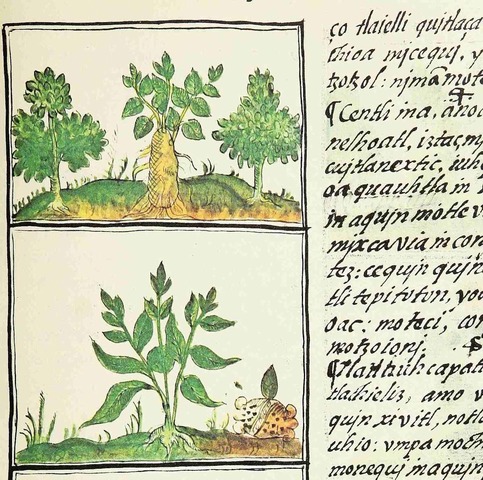 ço tlaielli quitlaça
thioa mjcequj, y
tzotzol: njmã mote
¶Centli ina, anoç
nelhoatl, iztac mj
cujtlanextic, iuh
oa quauhtla m
in aqujn motle v
myxcavia in con
tez: cequjn qujn
tli tepitoton, yoa
oac: moteci, con
motzoionj.
¶Tlatlauhcapatli
tlackieliz, amo v
qujn xivitl, notla
uhio: vmpa moch
monequj maqujn